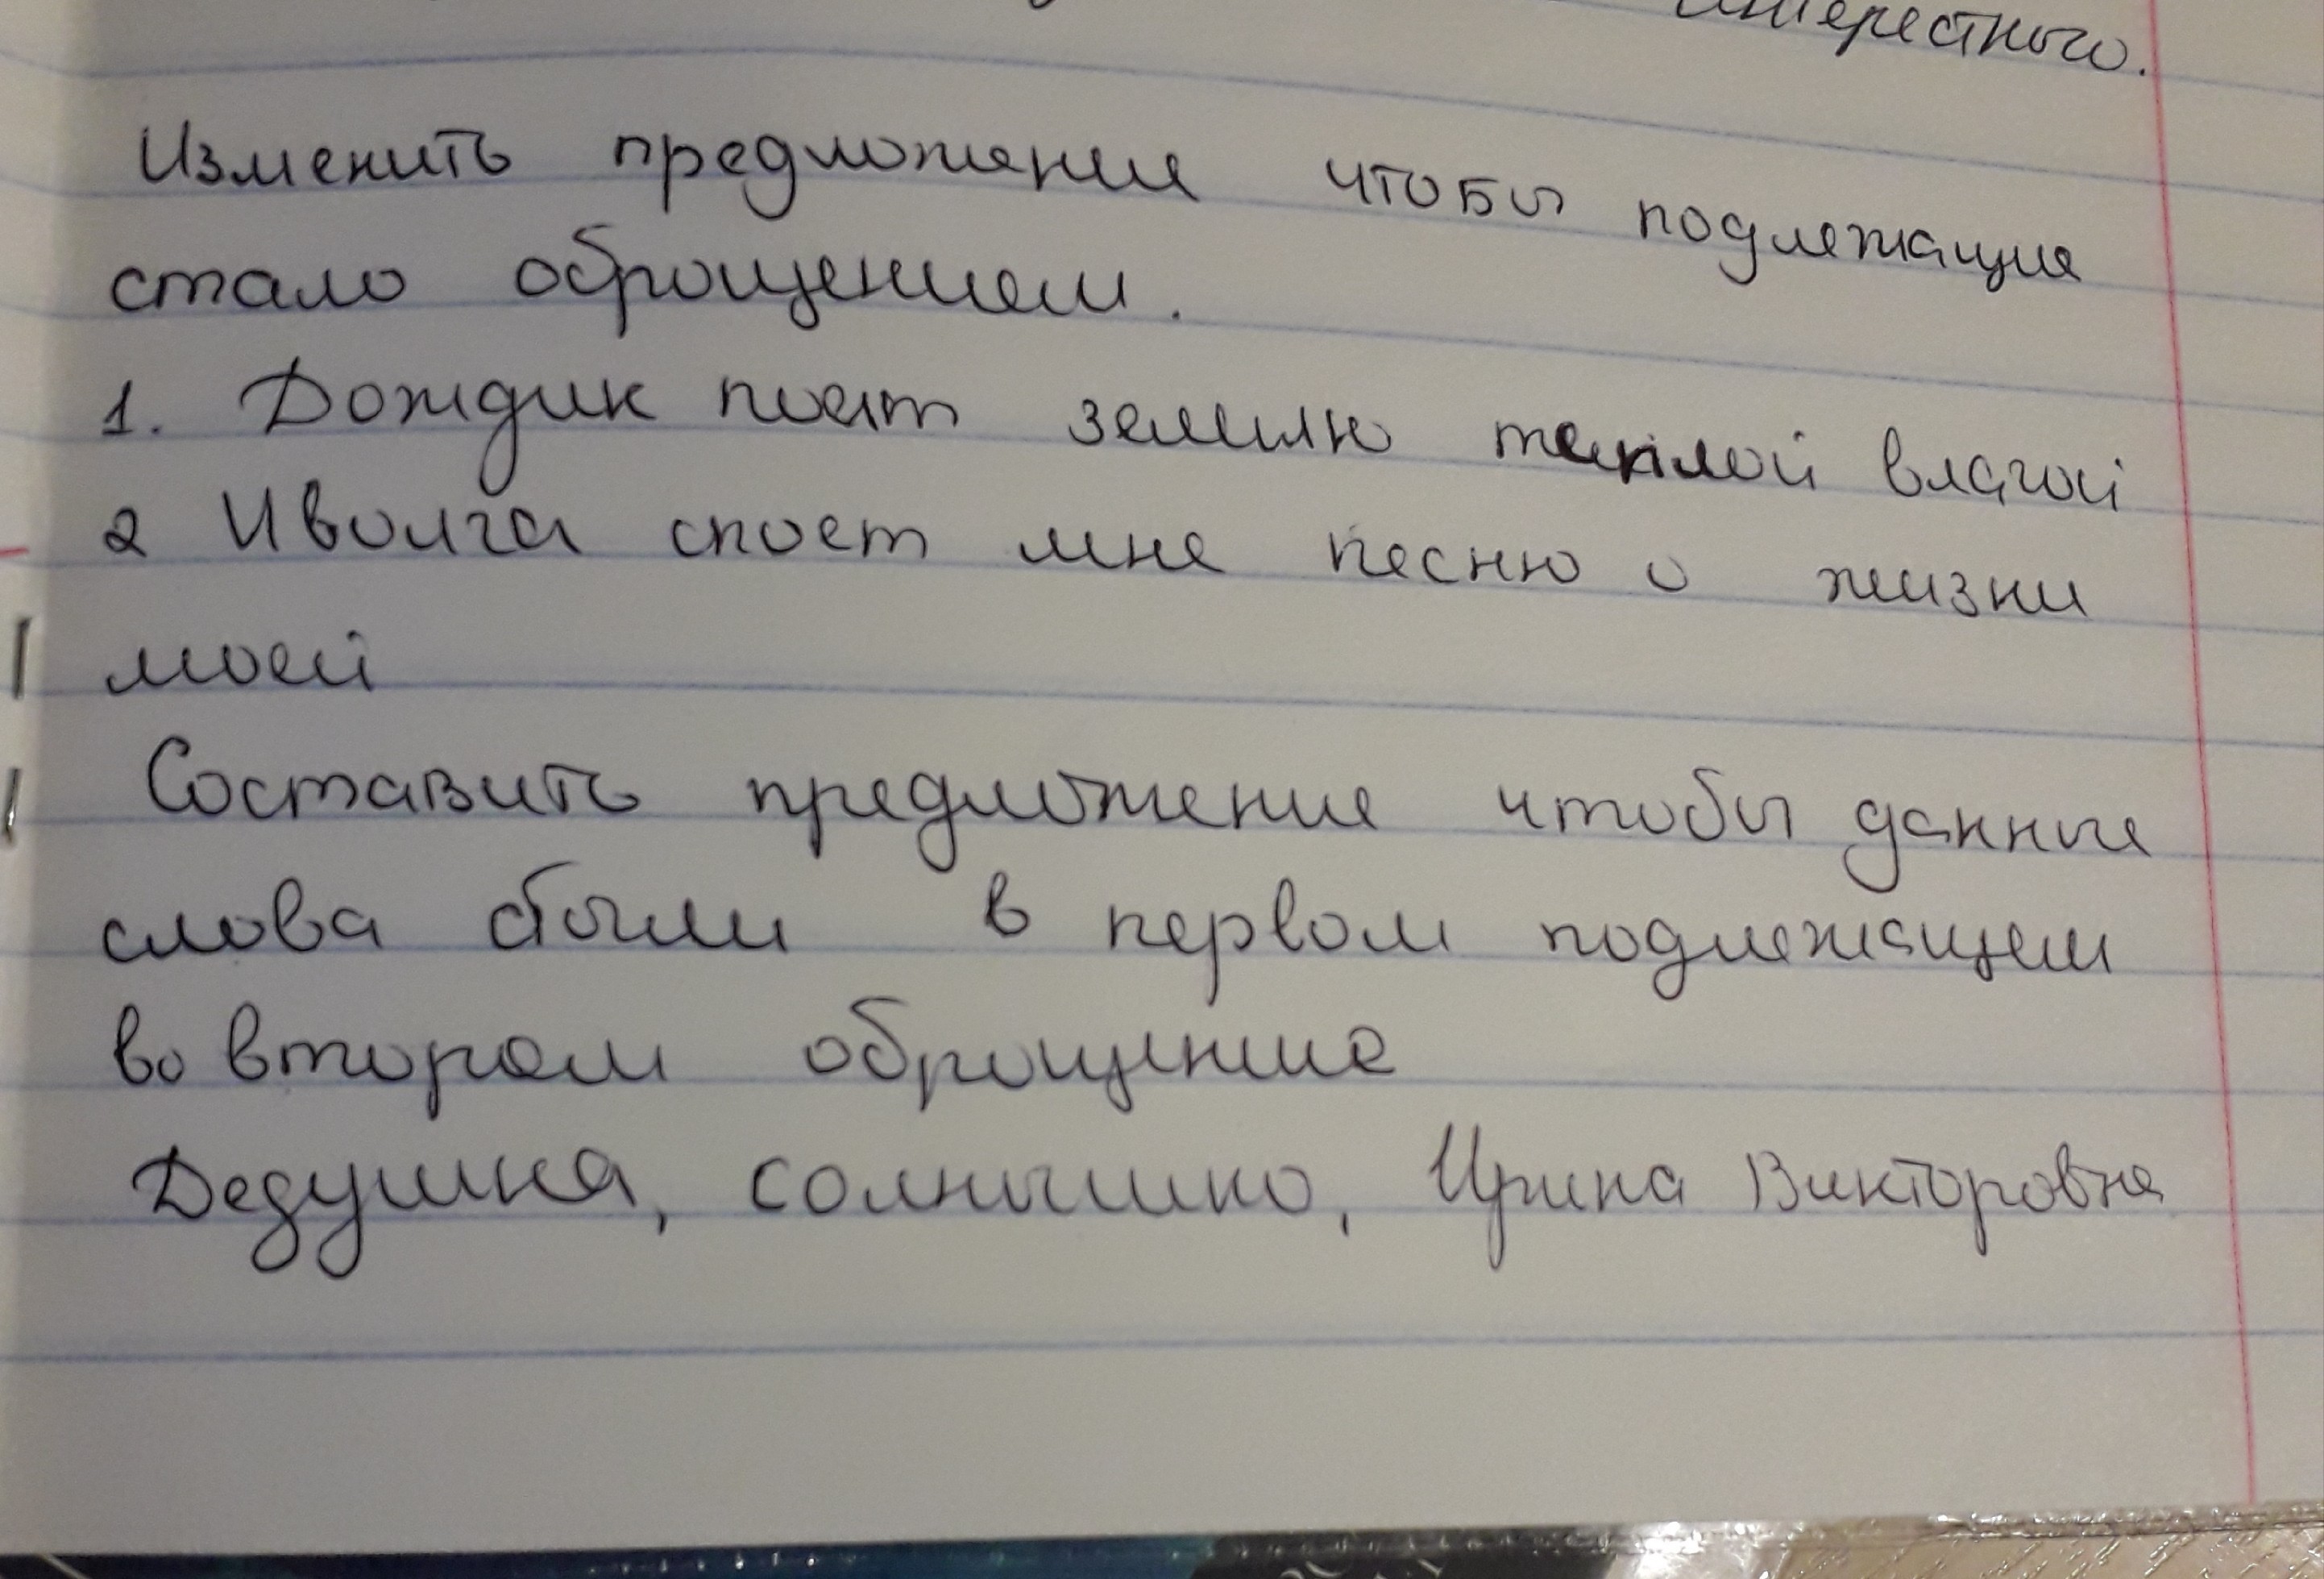 интерестного.
Изменить предложение чтобы подлежащие
стало обращением.
1. Дождик поят землю теплой влагой
2 Иволга споет мне песню о жизни
моей
Составить предложение чтобы данные
слова были в первом подлежащем
во втором обращение
Дедушка, солнышко, Ирина Викторовна